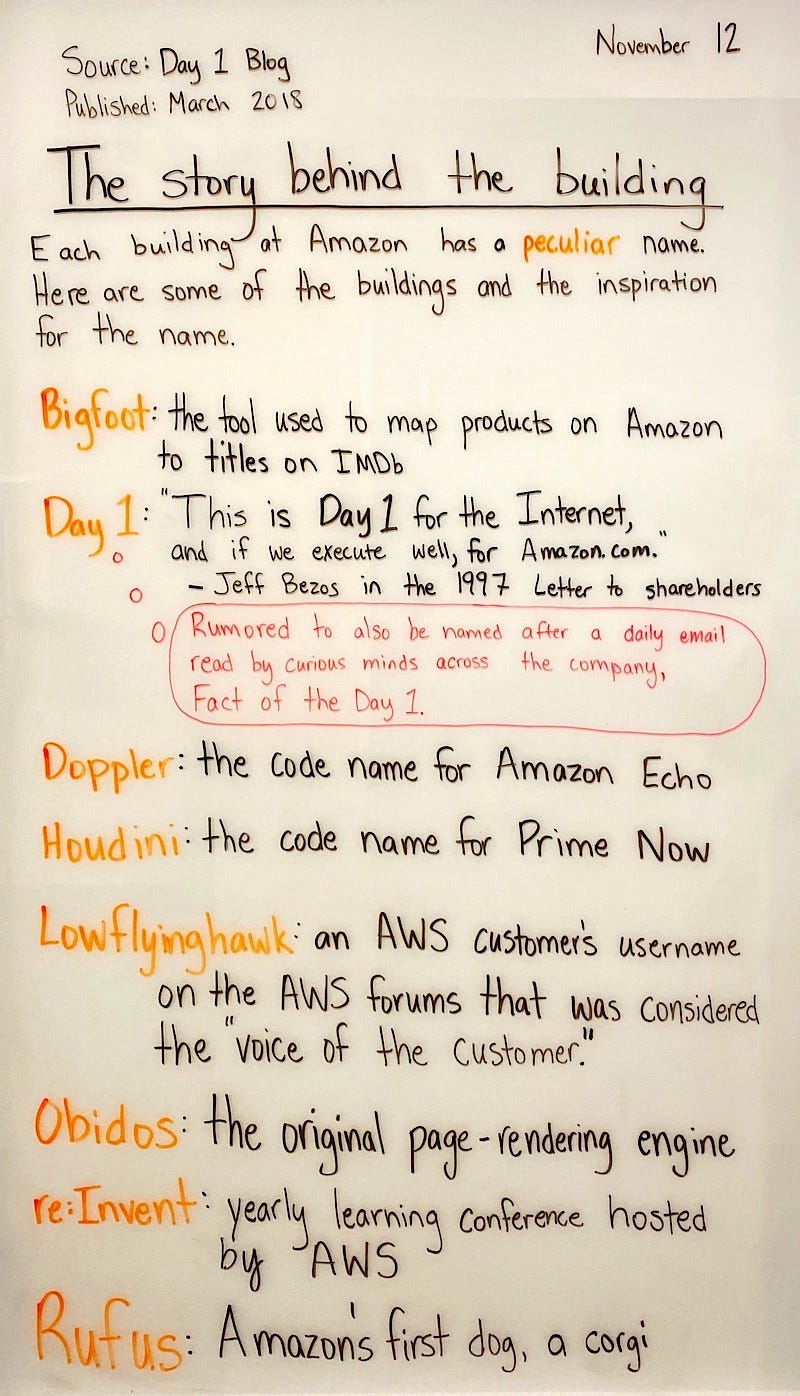 November 12
Source: Day 1 Blog
Published: March 2018
The story behind the building
Each building at Amazon has a peculiar name.
Here are some of the buildings and the inspiration
for the name.
Bigfoot: the tool used to map products on Amazon
to titles on IMDb
Day 1: "This is Day 1 for the Internet,
and if we execute well, for Amazon.com."
- Jeff Bezos in the 1997 Letter to shareholders
Rumored to also be named after a daily email
read by curious minds across the company,
Fact of the Day 1.
Doppler: the code name for Amazon Echo
Houdini: the code name for Prime Now
Lowflyinghawk: an AWS customer's username
on the AWS forums that was considered
the "voice of the customer."
Obidos: the original page-rendering engine
re:Invent: yearly learning conference hosted
by AWS
Rufus: Amazon's first dog, a corgi